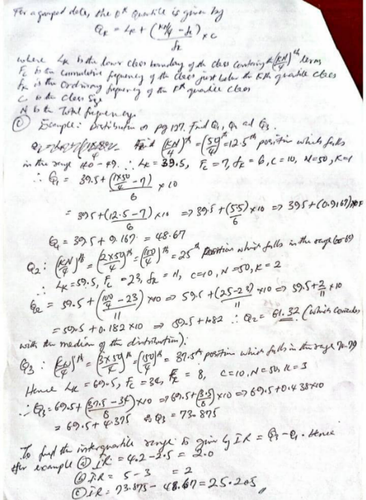 For a grouped data, the kth Quartile is given by
Qk = Lk + (kN/4 - Fc)/fk × C
where Lk is the lower class boundary of the class containing the (kN/4)th term
Fc is the cumulative frequency of the class just before the kth quartile class
fk is the ordinary frequency of the kth quartile class
C is the class size
N is the Total frequency
(c) Example: Distribution on pg 127. Find Q1, Q2 and Q3.
Find (kN/4)th = (50/4)th = 12.5th position which falls
in the range 40 - 49. ∴ Lk = 39.5, Fc = 7, fk = 6, C = 10, N = 50, K = 1
∴ Q1 = 39.5 + (1×50/4 - 7)/6 × 10
= 39.5 + (12.5 - 7)/6 × 10 ⇒ 39.5 + (5.5)/6 × 10 ⇒ 39.5 + (0.9167)×10
Q1 = 39.5 + 9.167 = 48.67
Q2: (kN/4)th = (2×50/4)th = (100/4)th = 25th position which falls in the range 60-69
∴ Lk = 59.5, Fc = 23, fk = 11, C = 10, N = 50, K = 2
Q2 = 59.5 + (100/4 - 23)/11 × 10 ⇒ 59.5 + (25 - 23)/11 × 10 ⇒ 59.5 + 2/11 × 10
= 59.5 + 0.182 × 10 ⇒ 59.5 + 1.82 ∴ Q2 = 61.32 (which coincides
with the median of the distribution).
Q3: (kN/4)th = (3×50/4)th = (150/4)th = 37.5th position which falls in the range 70-79
Hence Lk = 69.5, Fc = 34, fk = 8, C = 10, N = 50, K = 3
∴ Q3 = 69.5 + (37.5 - 34)/8 × 10 ⇒ 69.5 + (3.5)/8 × 10 ⇒ 69.5 + 0.438×10
= 69.5 + 4.375 ∴ Q3 = 73.875
To find the interquartile range is given by I.R = Q3 - Q1. Hence
for example (a) I.R = 4.2 - 2.5 = 2.0
(b) I.R = 5 - 3 = 2
(c) I.R = 73.875 - 48.67 = 25.205